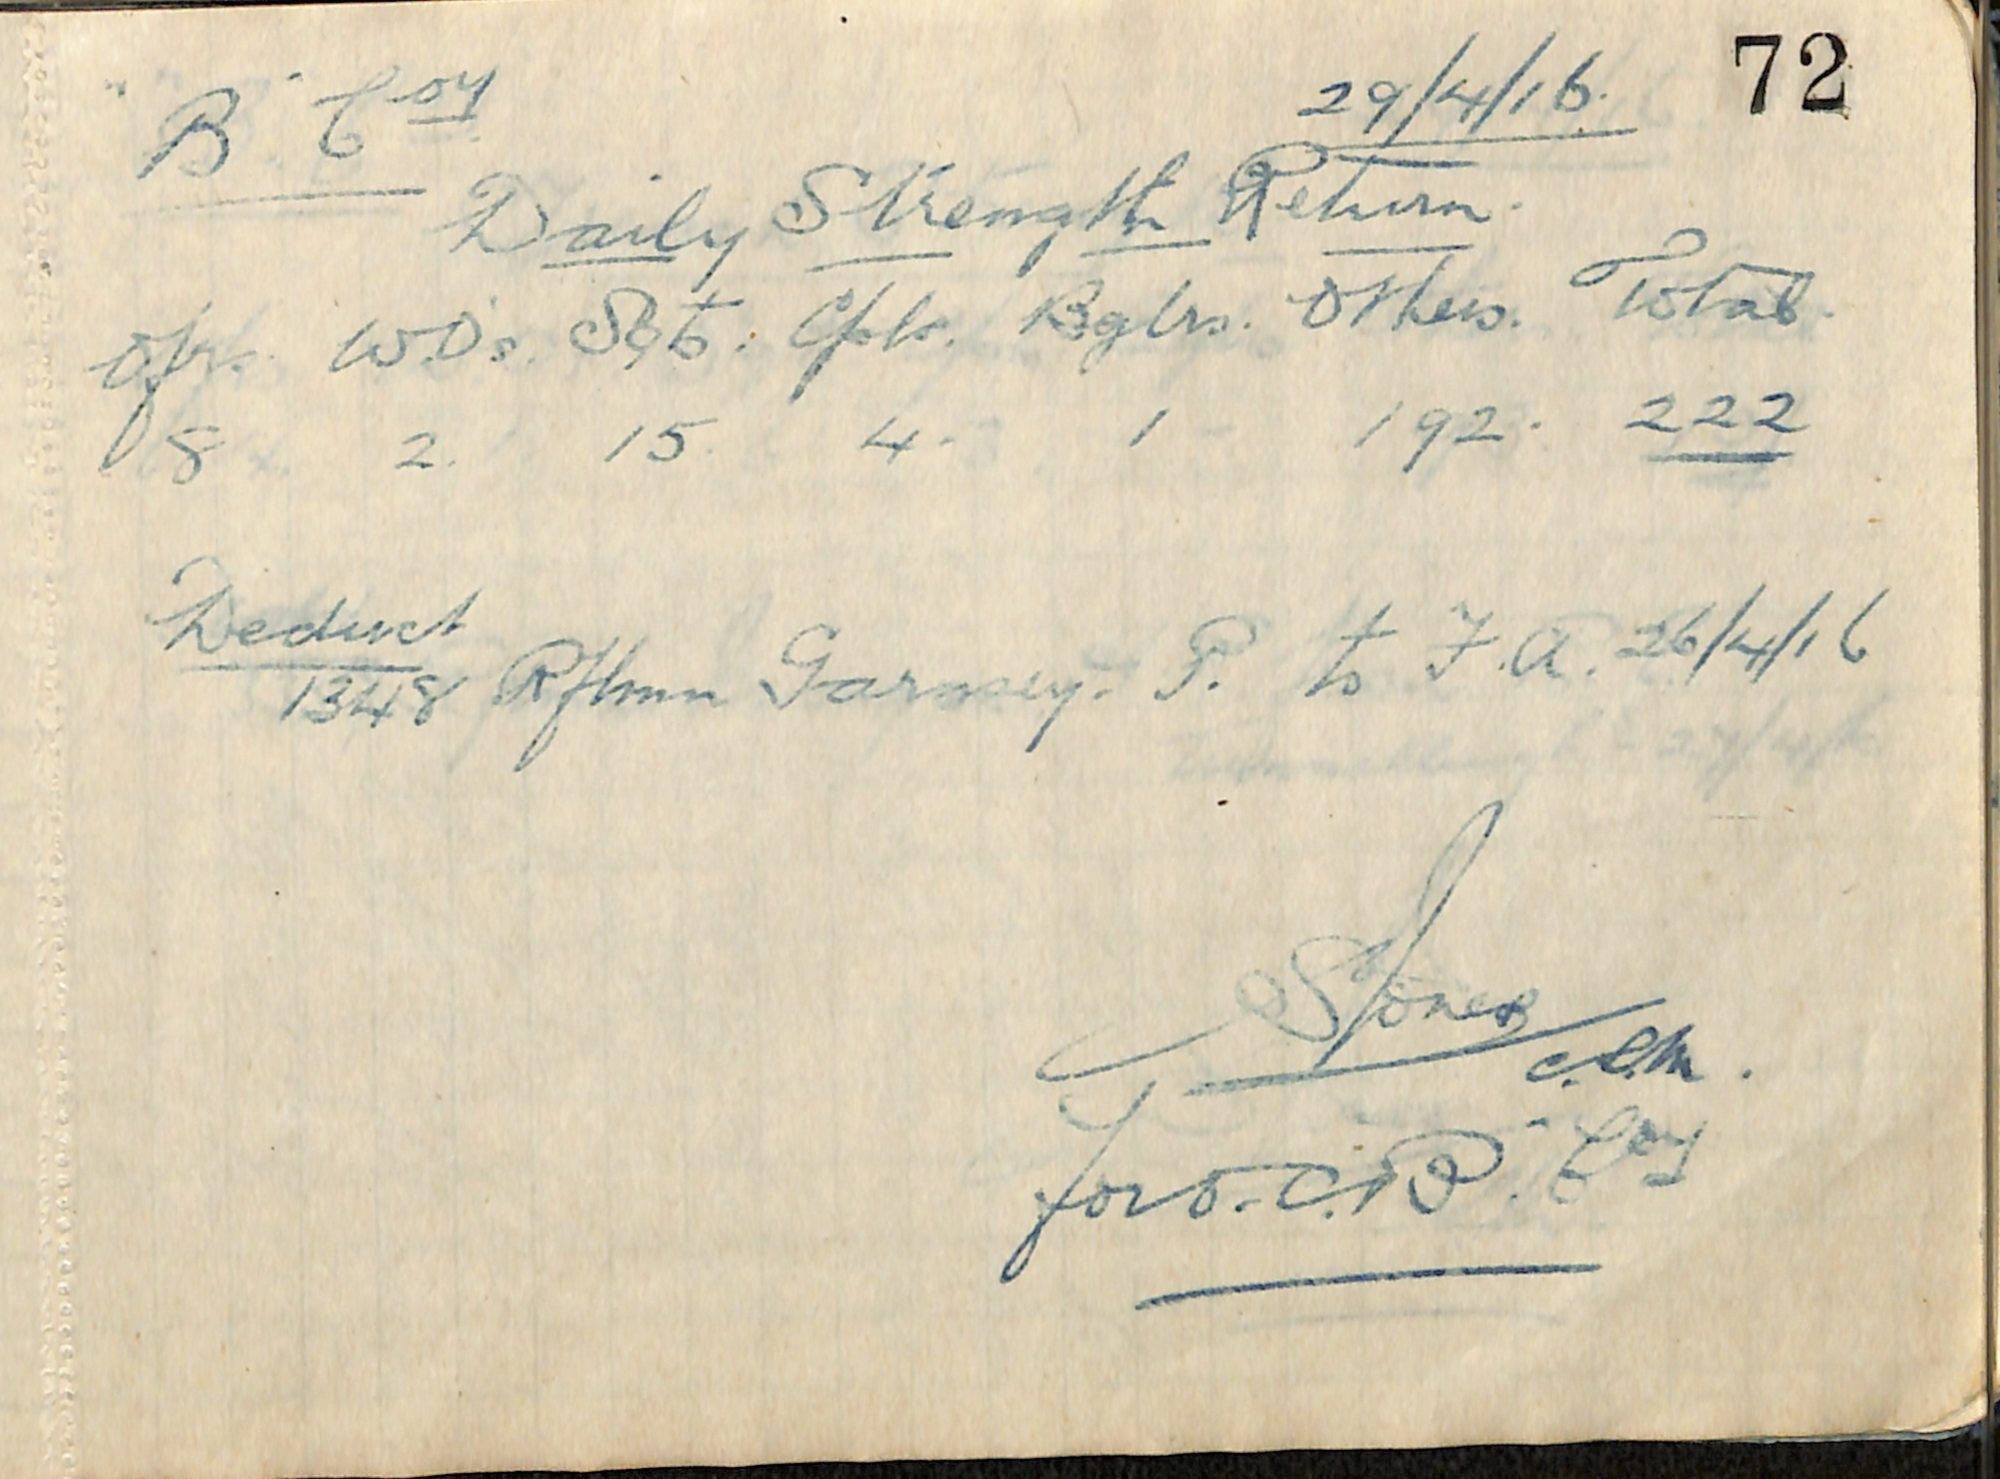 72
"B" Coy 29/4/16.
Daily Strength Return.
Ofrs. W.O's. Sgts. Cpls. Bglrs. Others. Total.
8 2. 15. 4. 1 192. 222
Deduct
1348 Rflmn Garnsey. P. to F.A. 26/4/16
Jones
C.S.M.
for O.C. "B" Coy